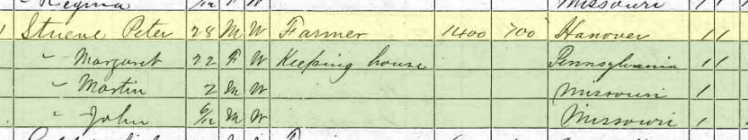 Regina Missouri
1 Stuene Peter 28 M W Farmer 1400 700 Hanover 1 1
" Margaret 22 F W Keeping house Pennsylvania 1 1
" Martin 2 M W Missouri 1
" John 6/12 M W Missouri 1